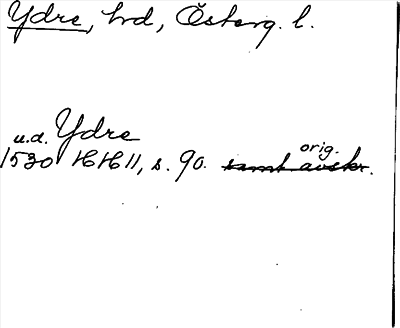 Ydre, hrd, Österg. l.
u.d. Ydre
orig.
1530 HH II, s. 90. samt avskr.